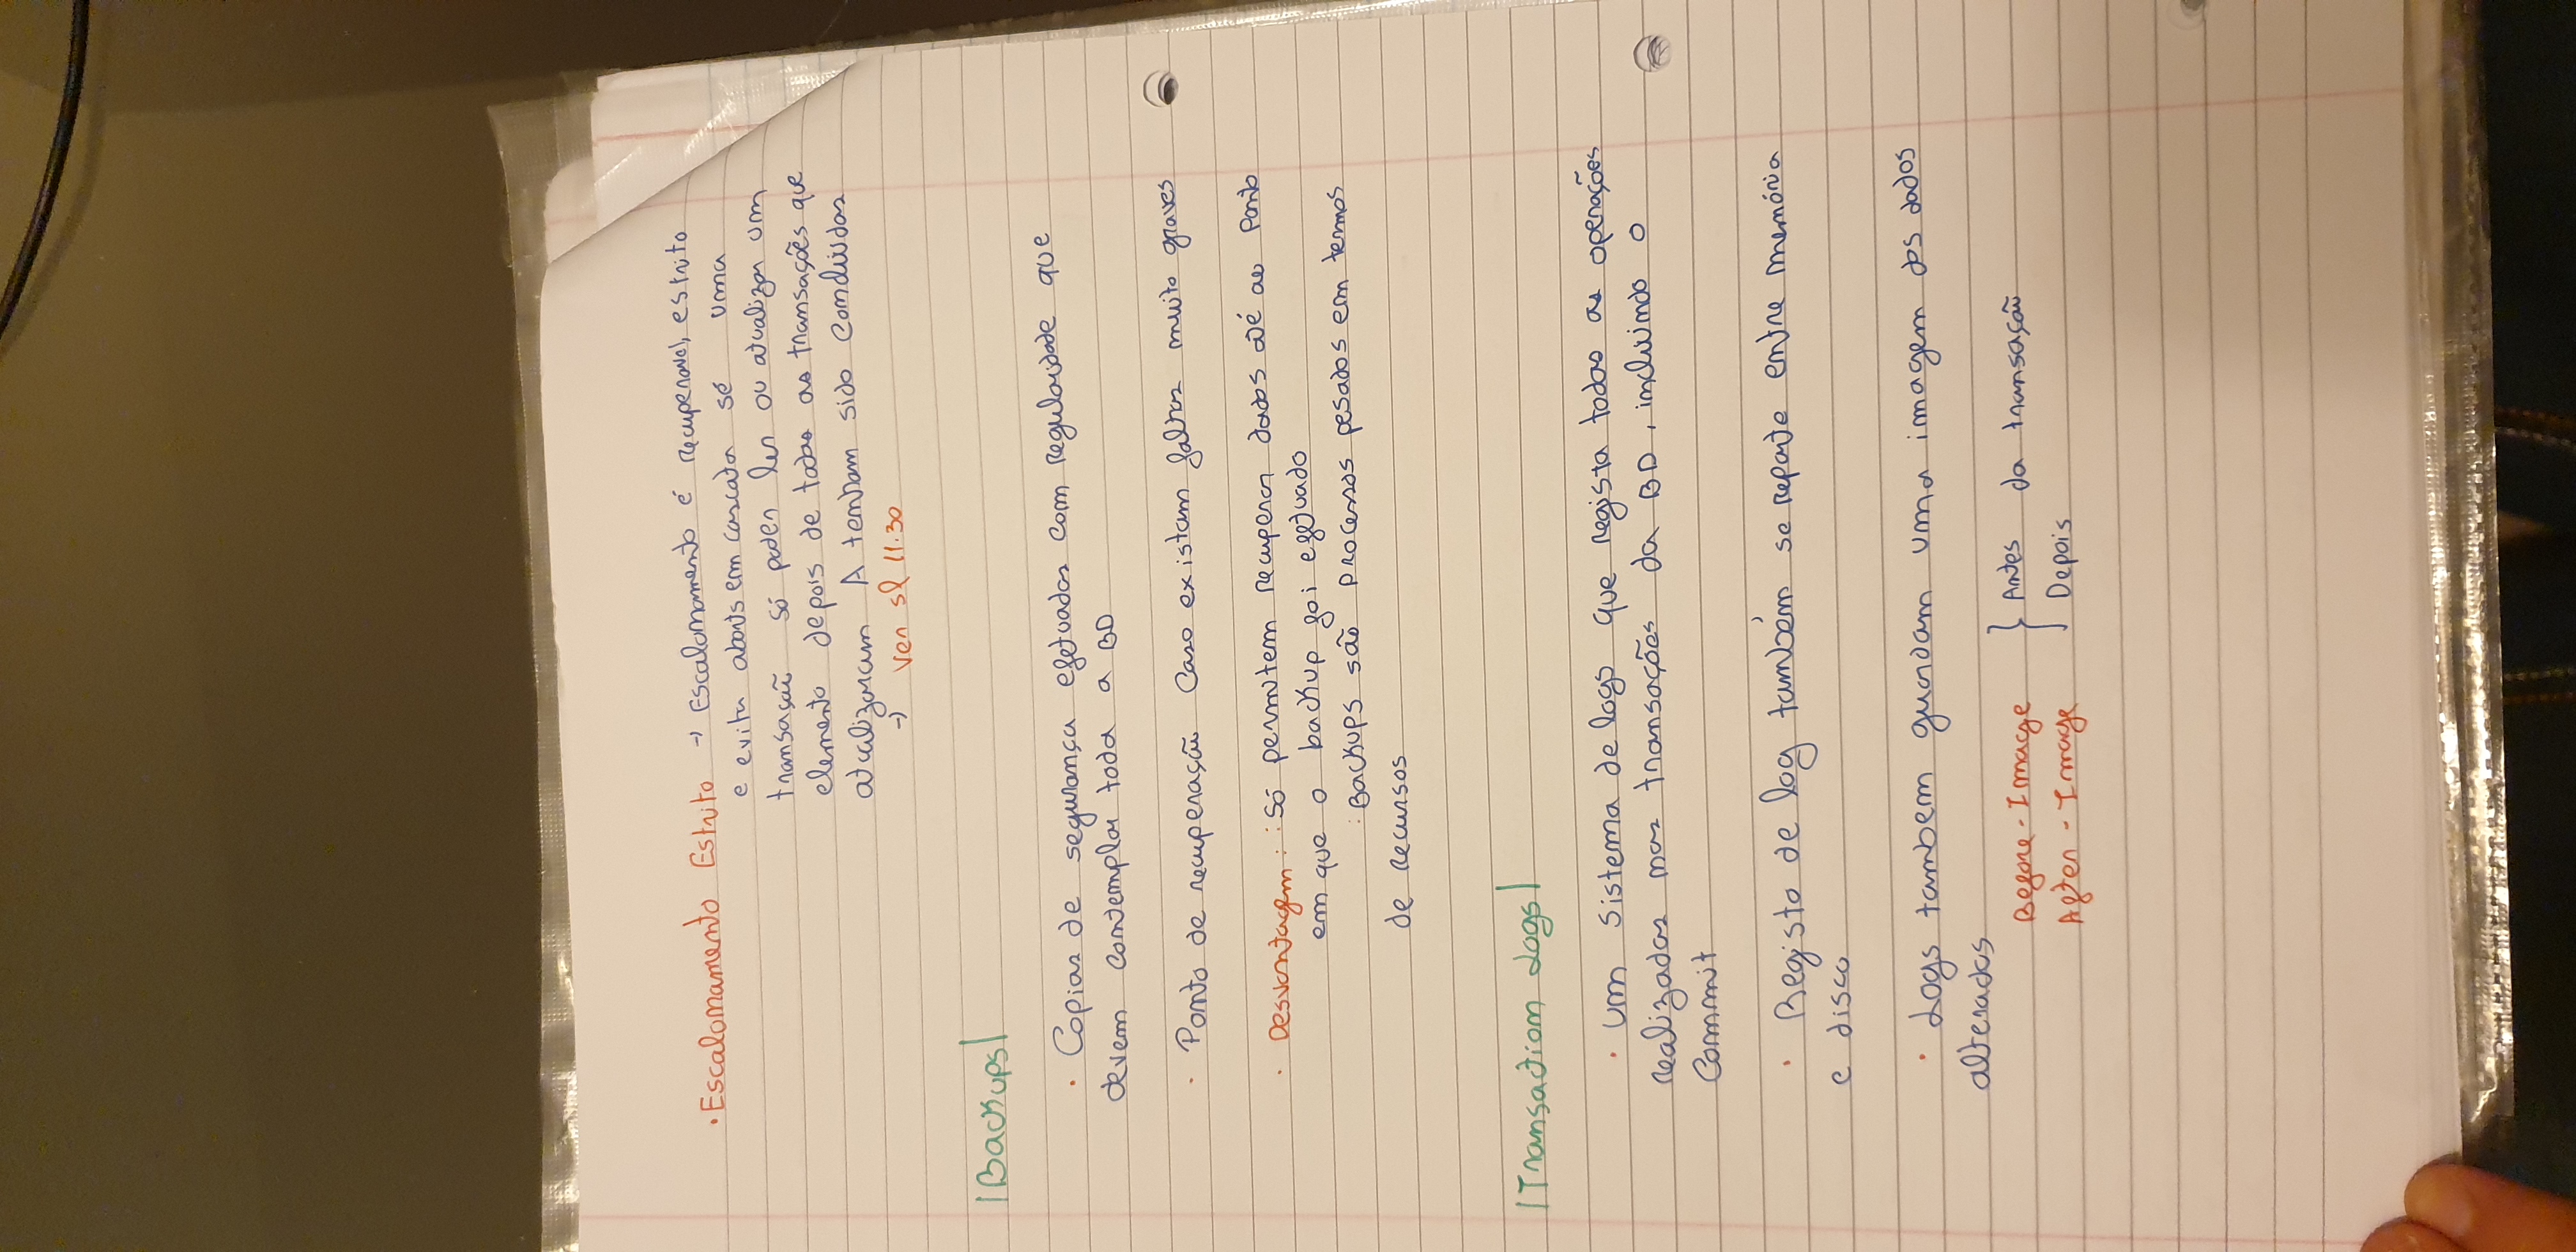 · Escalonamento Estrito → Escalonamento é recuperavel, estrito
e evita aborts em cascata sé uma
transação só poder ler ou atualizar um
elemento depois de todas as transações que
atualizaram A tenham sido concluidas
→ Ver sl 11.30
|Backups|
· Copias de segurança efetuadas com regularidade que
devem contemplar toda a BD
· Ponto de recuperação caso existam falhas muito graves
· Desvantagem: : Só permitem recuperar dados até ao Ponto
em que o backup foi efetuado
: Backups são processos pesados em termos
de recursos
|Transaction Logs|
· Um sistema de logs que regista todas as operações
realizadas nas transações da BD, incluindo o
Commit
· Registo de log também se reparte entre memória
e disco
· Logs tambem guardam uma imagem dos dados
alterados
Before - Image } Antes da transação
After - Image Depois